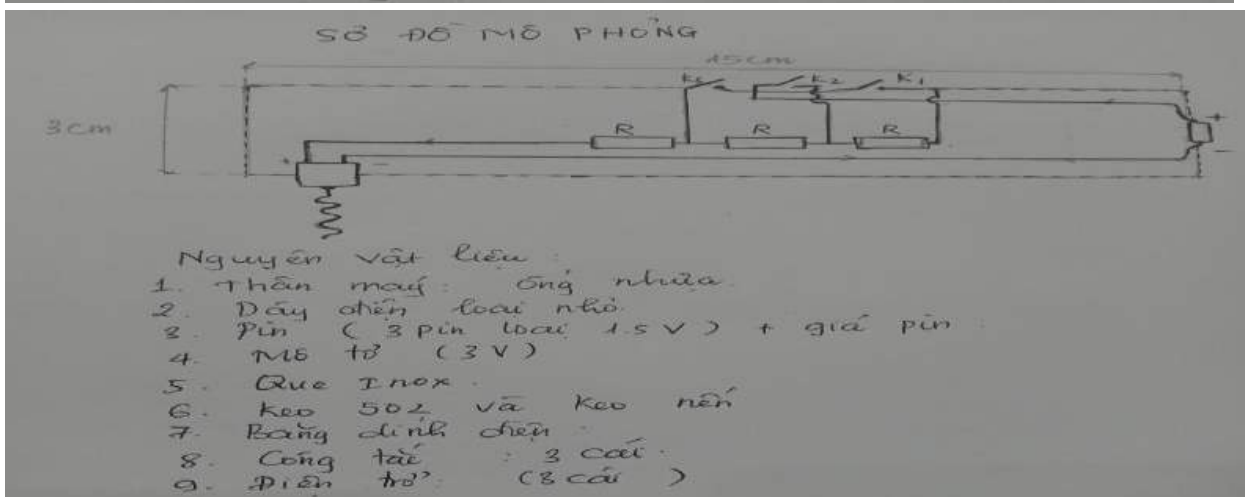 SƠ ĐỒ MÔ PHỎNG
15cm
K2 K1
3cm
R R R
+
-
+ -
Nguyên vật liệu :
1. Thân máy : ống nhựa
2. Dây điện loại nhỏ
3. Pin ( 3 pin loại 1.5 V ) + giá pin
4. Mô tơ (3 V)
5. Que Inox .
6. Keo 502 và Keo nến
7. Băng dính điện .
8. Công tắc : 3 cái .
9. Điện trở : (3 cái )